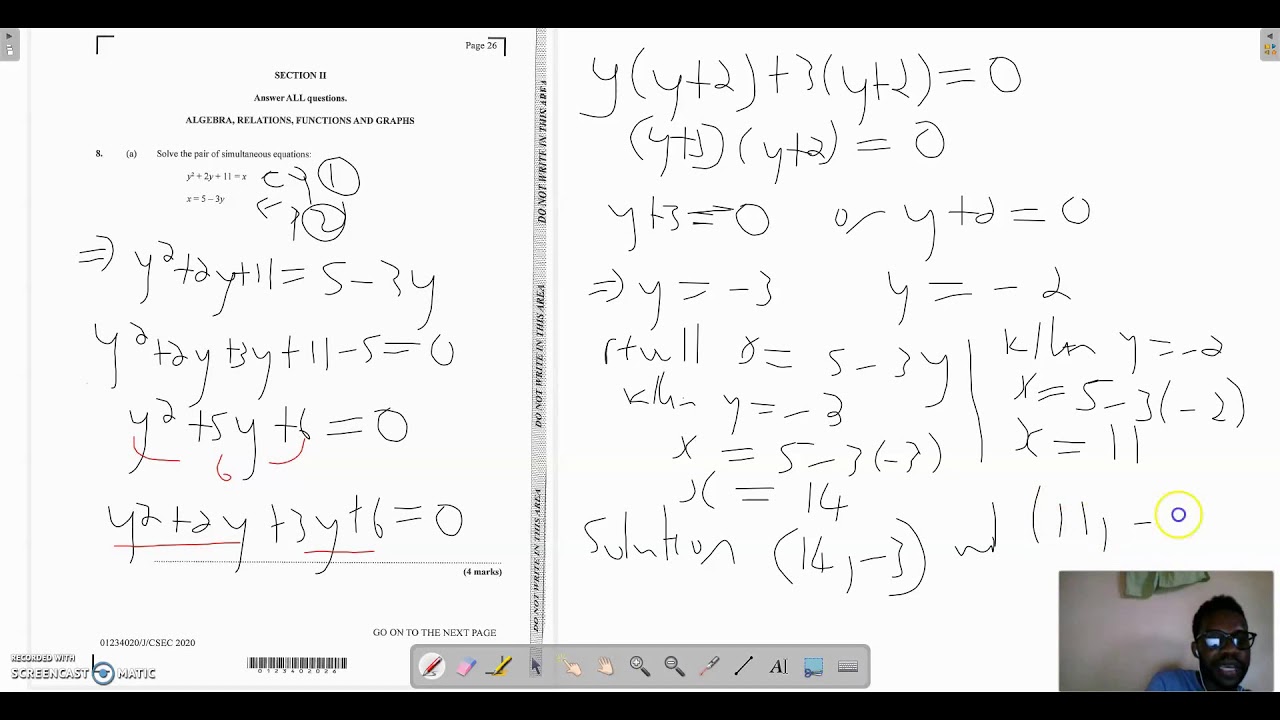 Page 26
SECTION II
Answer ALL questions.
ALGEBRA, RELATIONS, FUNCTIONS AND GRAPHS
8. (a) Solve the pair of simultaneous equations:
y² + 2y + 11 = x eq 1
x = 5 – 3y eq 2
⇒ y²+2y+11 = 5 - 3y
y²+2y+3y+11-5=0
y²+5y+6=0
6
y²+2y+3y+6=0
(4 marks)
GO ON TO THE NEXT PAGE
01234020/J/CSEC 2020
0 1 2 3 4 0 2 0 2 6
DO NOT WRITE IN THIS AREA
DO NOT WRITE IN THIS AREA
DO NOT WRITE IN THIS AREA
DO NOT WRITE IN THIS AREA
y(y+2)+3(y+2)=0
(y+3)(y+2)=0
y+3=0 or y+2=0
⇒ y = -3 y = -2
x = 5 - 3y
y = -3
x = 5-3(-3)
x = 14
when y=-2
x=5-3(-2)
x = 11
Solution (14, -3) and (11, -
RECORDED WITH
SCREENCAST MATIC
A